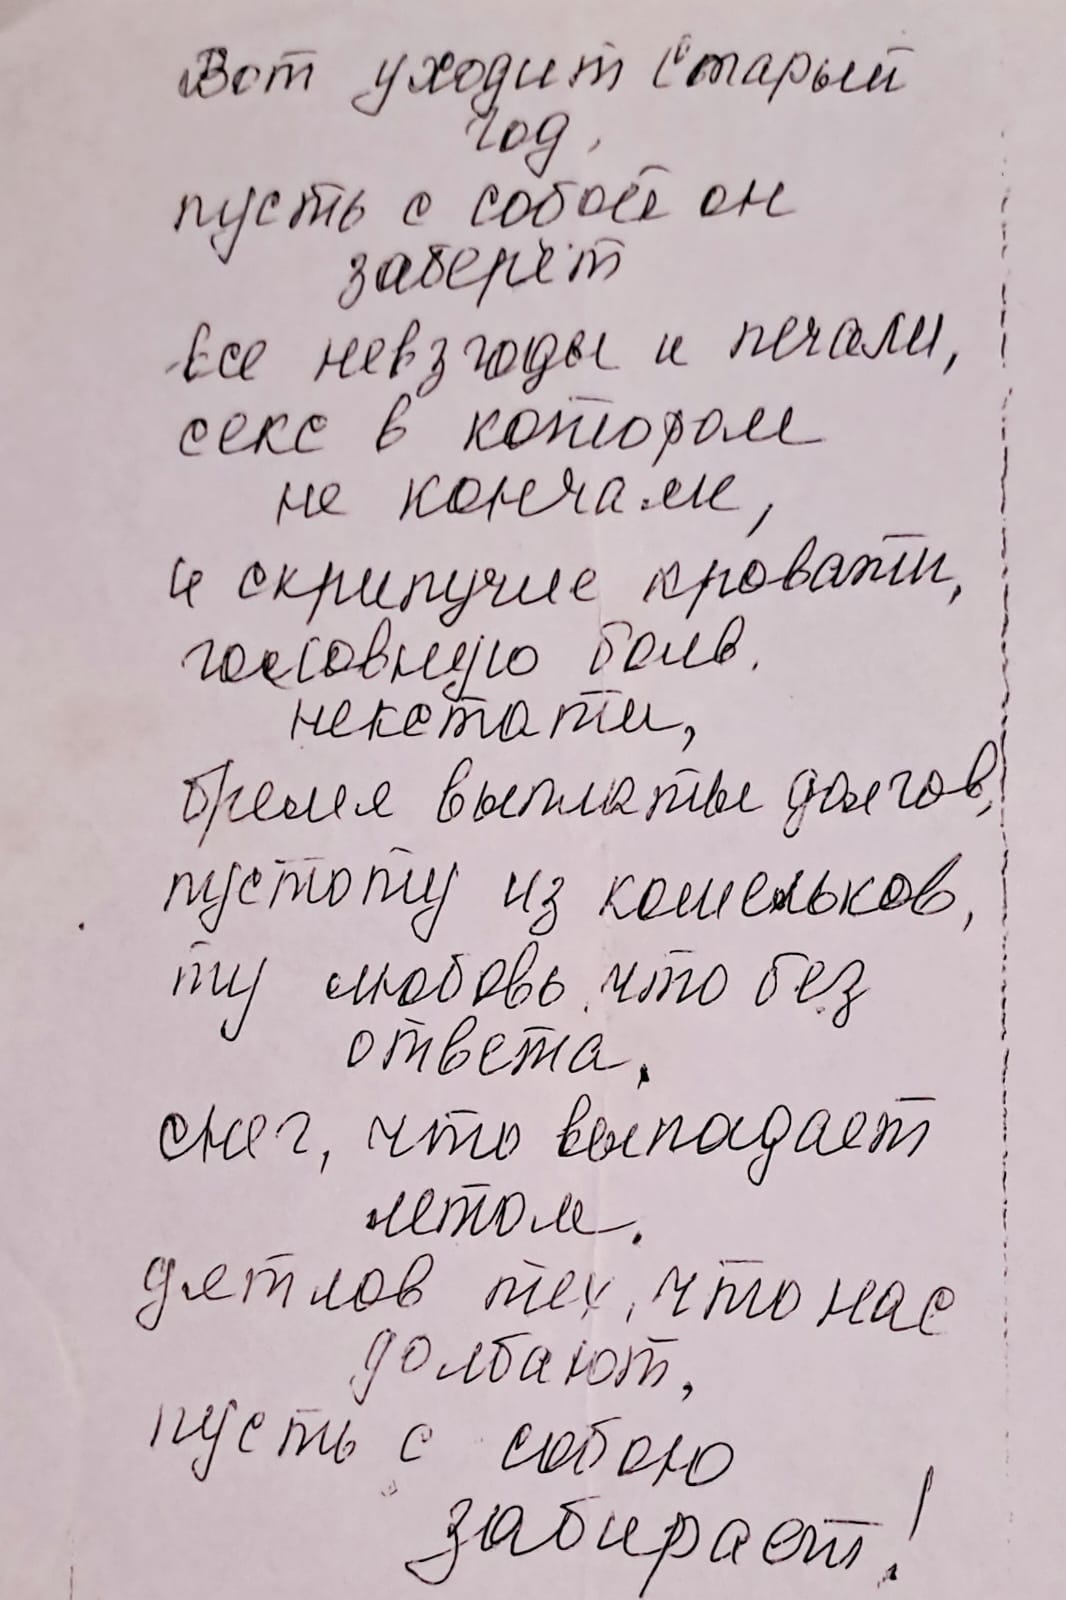 Вот уходит Старый
год,
пусть с собой он
заберёт
Все невзгоды и печали,
секс в котором
не кончали,
и скрипучие кровати,
головную боль.
некстати,
бремя выплаты долгов,
пустоту из кошельков,
ту любовь, что без
ответа,
снег, что выпадает
летом.
дятлов тех, что нас
долбают,
пусть с собою
забирает!